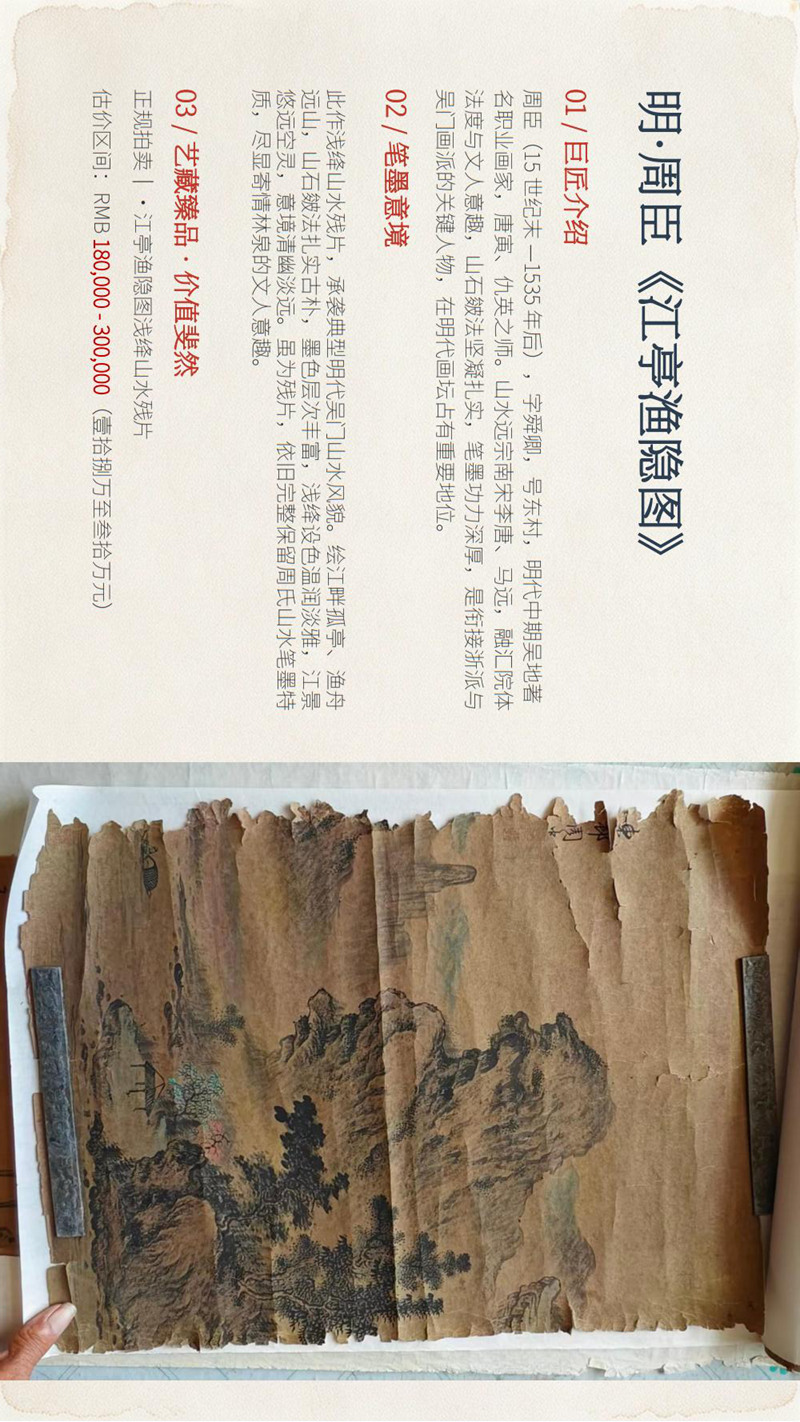 明·周臣《江亭渔隐图》
01 / 巨匠介绍
周臣（15 世纪末 —1535 年后），字舜卿，号东村，明代中期吴地著
名职业画家，唐寅、仇英之师。山水远宗南宋李唐、马远，融汇院体
法度与文人意趣，山石皴法坚凝扎实，笔墨功力深厚，是衔接浙派与
吴门画派的关键人物，在明代画坛占有重要地位。
02 / 笔墨意境
此作浅绛山水残片，承袭典型明代吴门山水风貌。绘江畔孤亭、渔舟
远山，山石皴法扎实古朴，墨色层次丰富，浅绛设色温润淡雅，江景
悠远空灵，意境清幽淡远。虽为残片，依旧完整保留周氏山水笔墨特
质，尽显寄情林泉的文人意趣。
03 / 艺藏臻品 · 价值斐然
正规拍卖｜·江亭渔隐图浅绛山水残片
估价区间：RMB 180,000 - 300,000（壹拾捌万至叁拾万元）